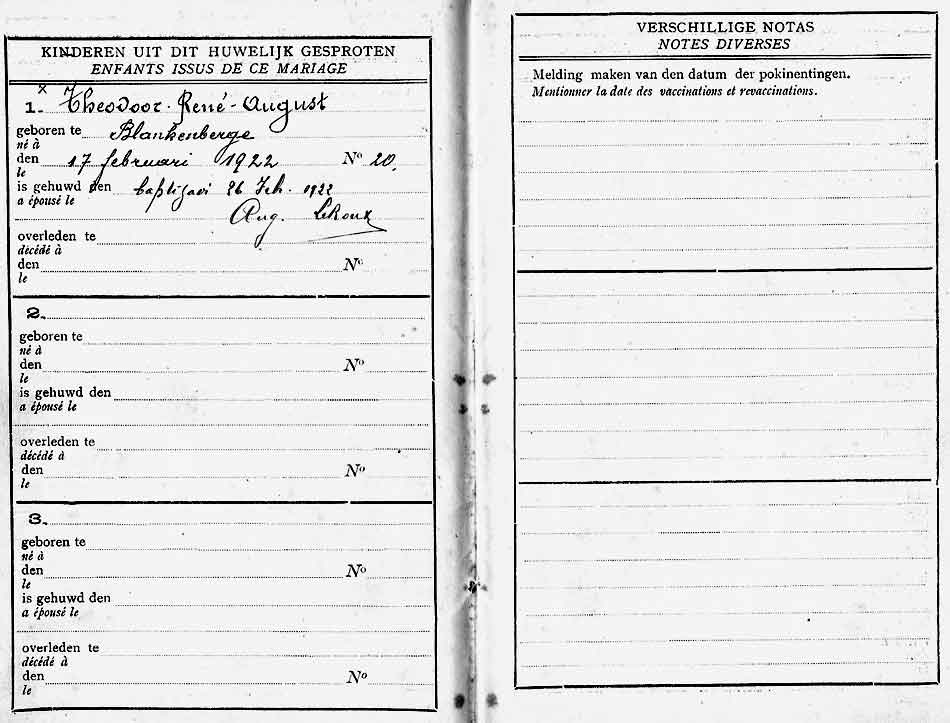 KINDEREN UIT DIT HUWELIJK GESPROTEN
ENFANTS ISSUS DE CE MARIAGE
x
1. Theodoor-René-August
geboren te Blankenberge
né à
den 17 februari 1922 Nº 20.
le
is gehuwd den 26 Feb. 1922
a épousé le
Aug. LeRoux
overleden te
décédé à
den Nº
le
2.
geboren te
né à
den Nº
le
is gehuwd den
a épousé le
overleden te
décédé à
den Nº
le
3.
geboren te
né à
den Nº
le
is gehuwd den
a épousé le
overleden te
décédé à
den Nº
le
VERSCHILLIGE NOTAS
NOTES DIVERSES
Melding maken van den datum der pokinentingen.
Mentionner la date des vaccinations et revaccinations.